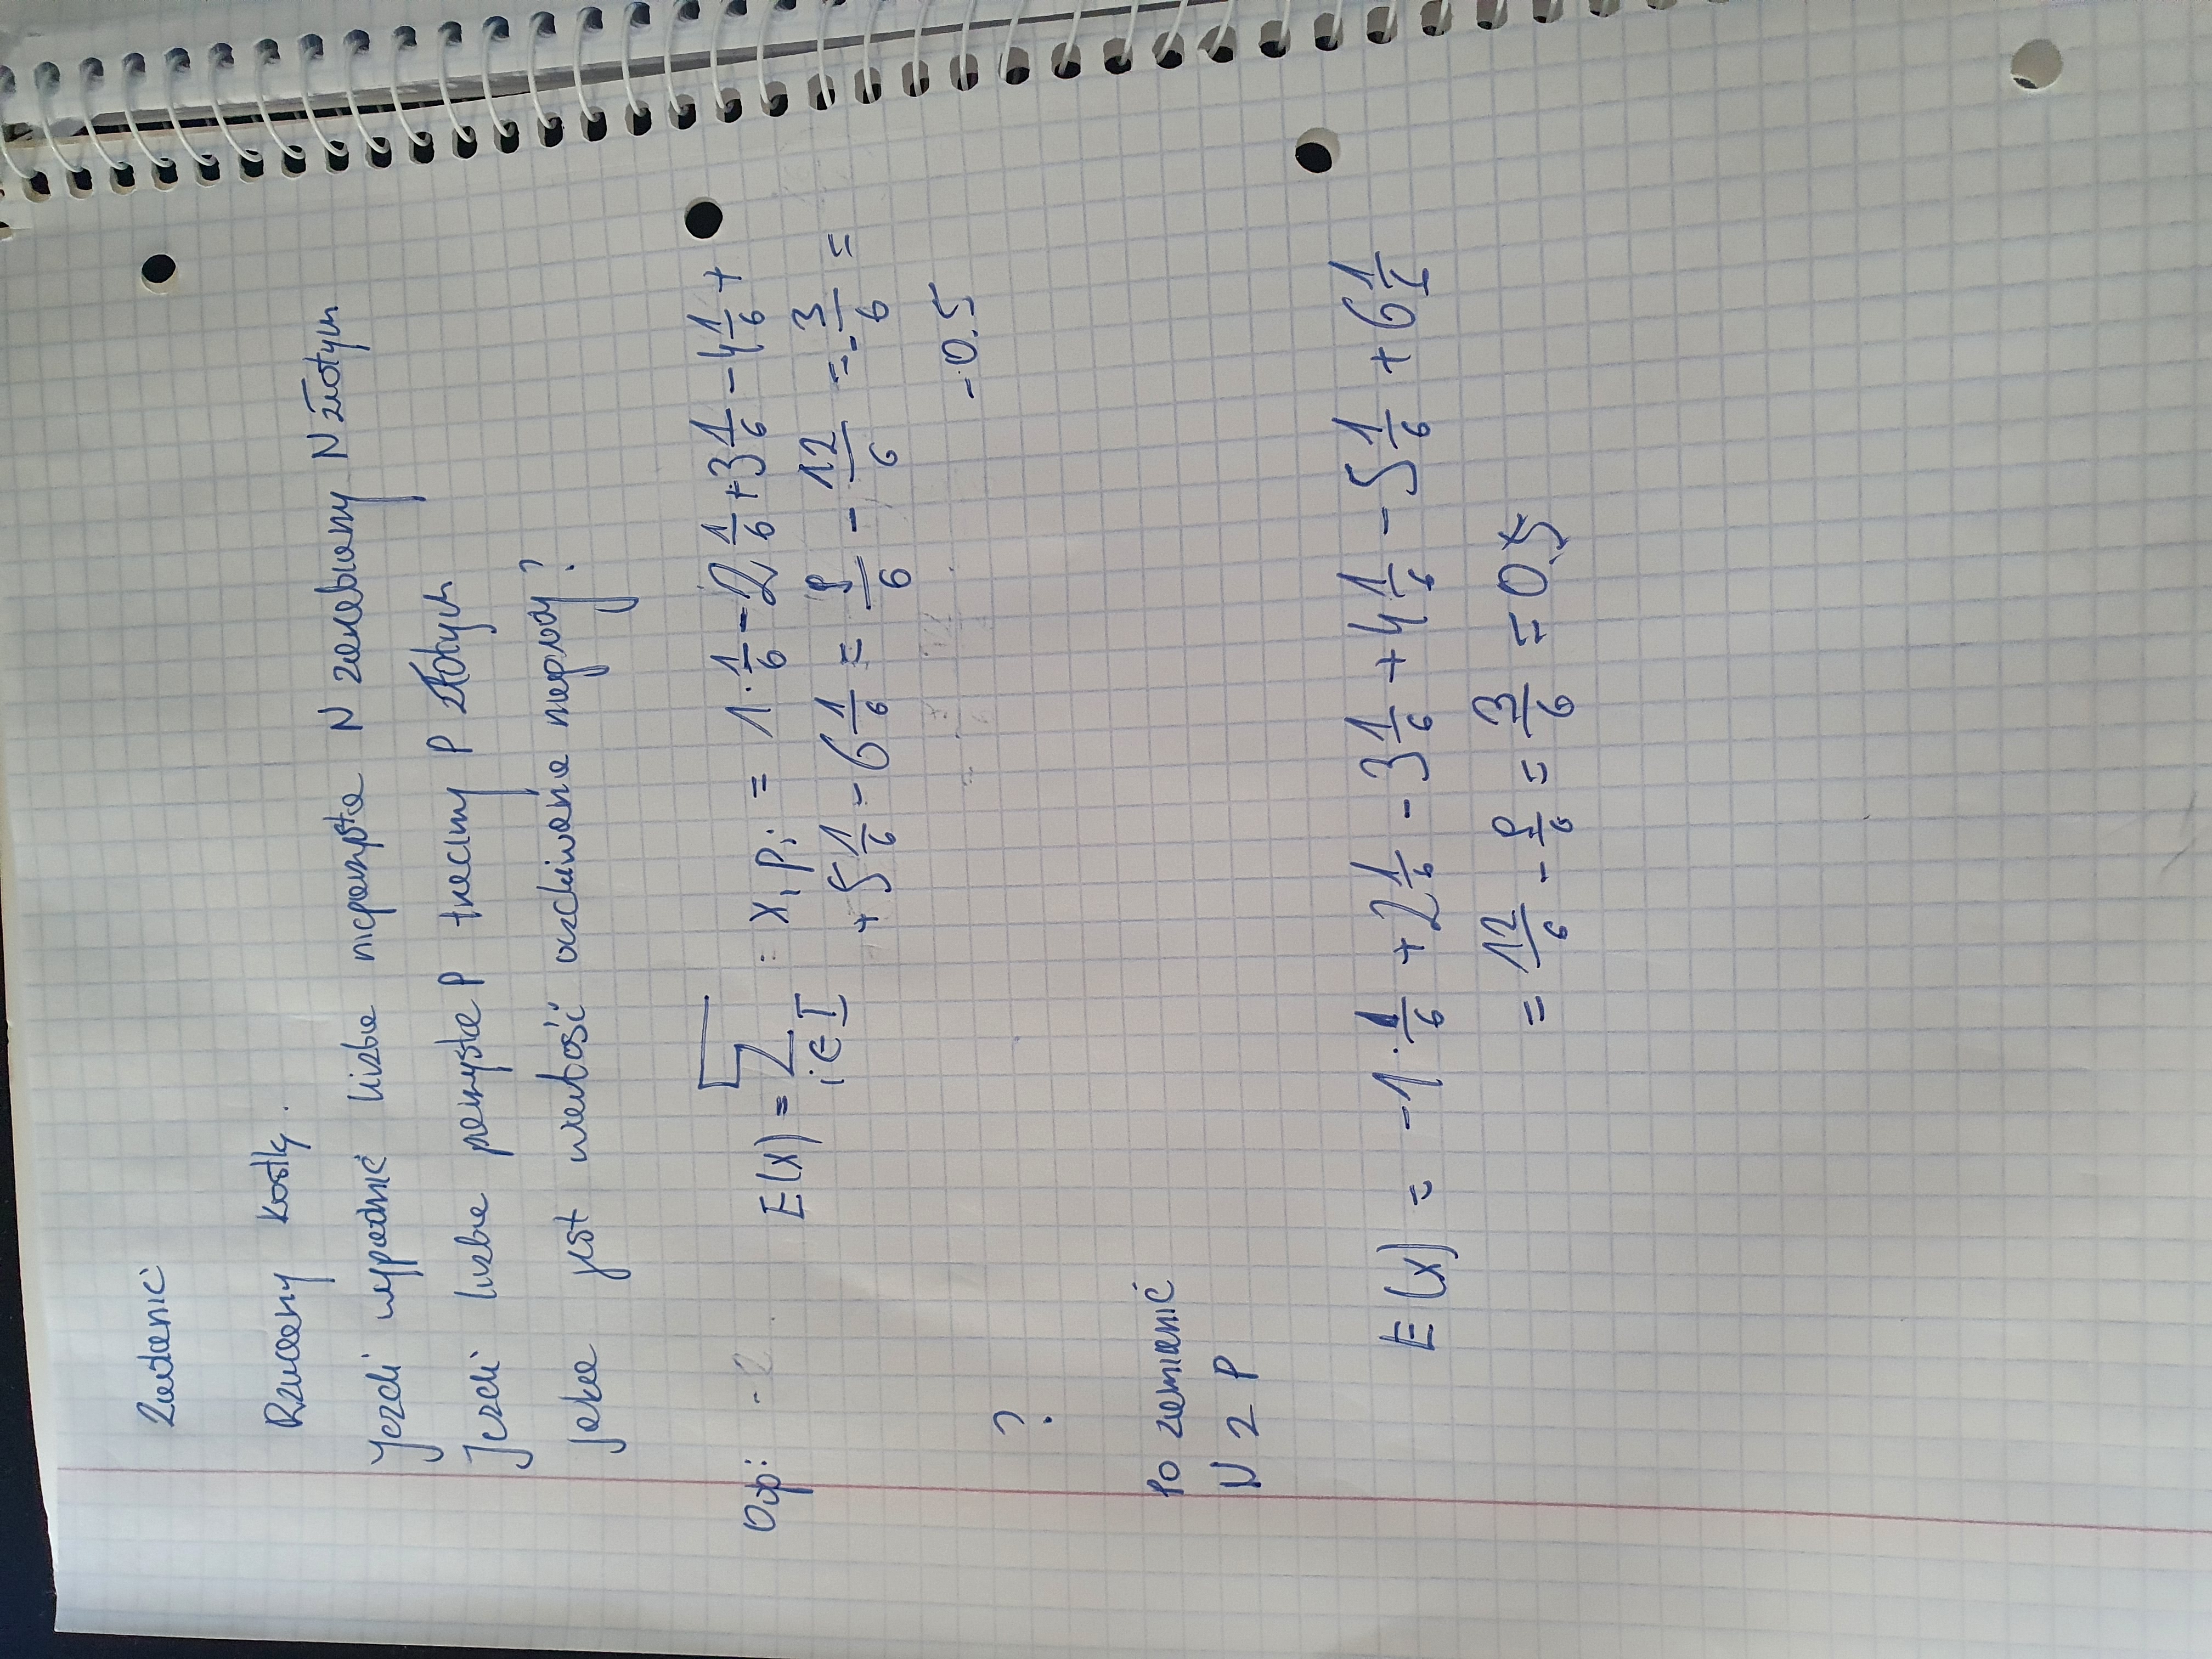 Zadanie
Rzucamy kostką.
Jeżeli wypadnie liczba nieparzysta N zarabiamy N złotych
Jeżeli liczba parzysta P tracimy P złotych
Jaka jest wartość oczekiwana nagrody?
Odp: E(X) = ∑ x_i p_i = 1·1/6 - 2 1/6 + 3 1/6 - 4 1/6 +
i∈I
+ 5 1/6 - 6 1/6 = 9/6 - 12/6 = -3/6 =
-0.5
?
Po zamianie
N z P
E(X) = -1·1/6 + 2 1/6 - 3 1/6 + 4 1/6 - 5 1/6 + 6 1/6
= 12/6 - 9/6 = 3/6 = 0,5